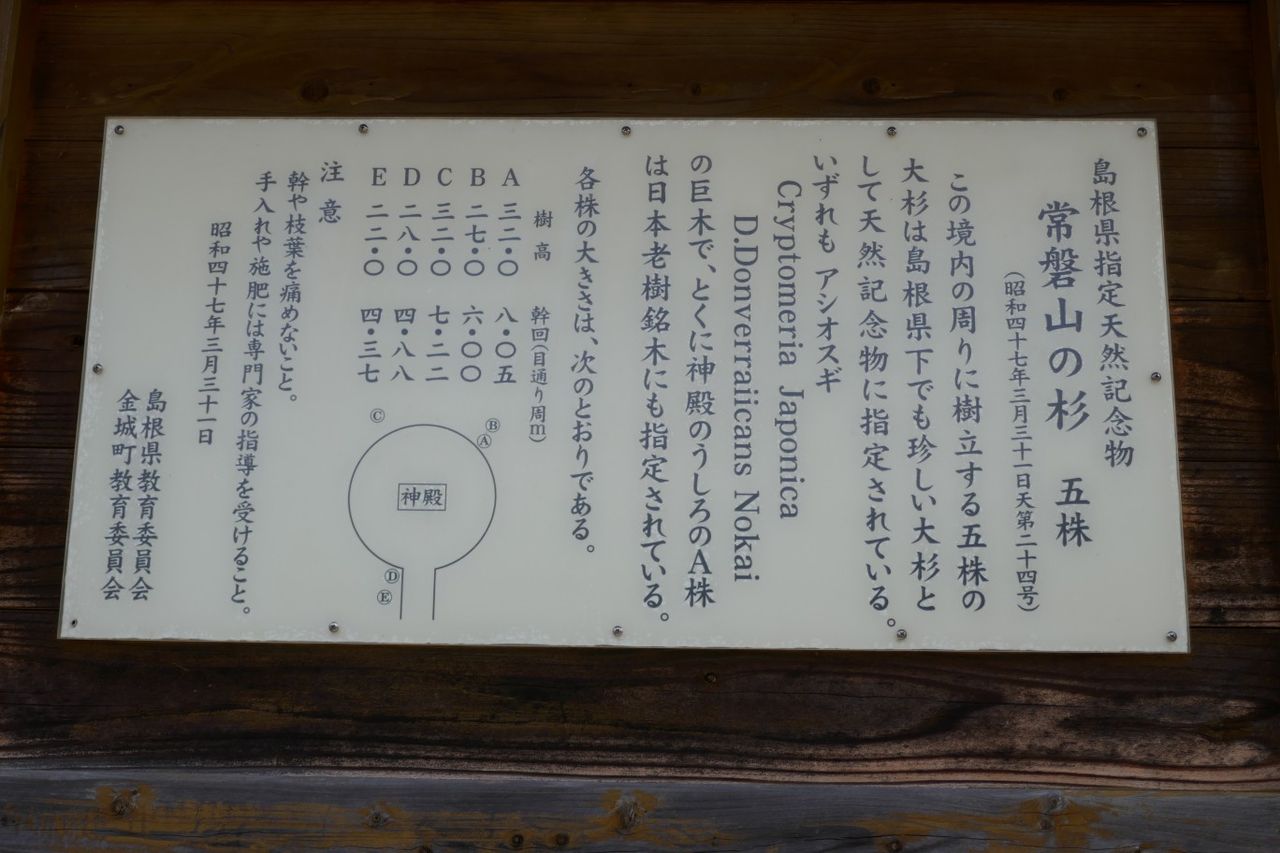 島根県指定天然記念物
常磐山の杉　五株
（昭和四十七年三月三十一日天第二十四号）
この境内の周りに樹立する五株の
大杉は島根県下でも珍しい大杉と
して天然記念物に指定されている。
いずれも アシオスギ
Cryptomeria Japonica
D.Donverraiicans Nokai
の巨木で、とくに神殿のうしろのA株
は日本老樹銘木にも指定されている。
各株の大きさは、次のとおりである。
樹高　幹回（目通り周m）
A 三二・〇　八・〇五
B 二七・〇　六・〇〇
C 三二・〇　七・二二
D 二八・〇　四・八八
E 二二・〇　四・三七
注意
幹や枝葉を痛めないこと。
手入れや施肥には専門家の指導を受けること。
昭和四十七年三月三十一日
島根県教育委員会
金城町教育委員会
Ⓒ
Ⓑ
Ⓐ
神殿
Ⓓ
Ⓔ